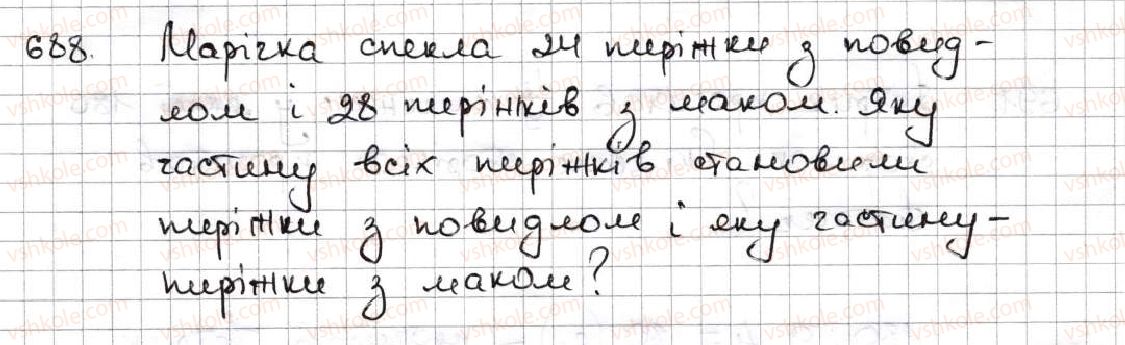 688. Марічка спекла 24 пиріжки з повид-
лом і 28 пиріжків з маком. Яку
частину всіх пиріжків становили
пиріжки з повидлом і яку частину -
пиріжки з маком?